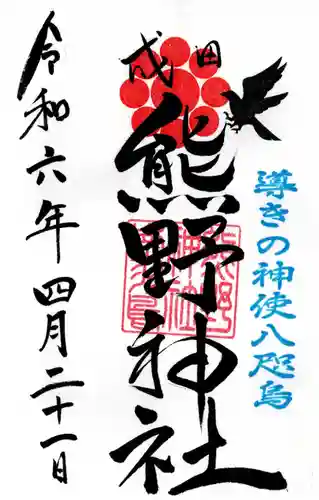 成田
熊野神社
導きの神使八咫烏
令和六年四月二十一日